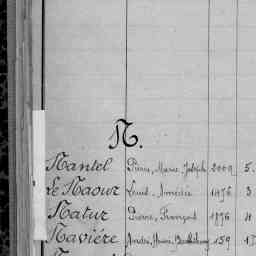 N.
Nantel Pierre, Marie, Joseph 2009 5.
Le Naour Louis, Amédée 1476 3
Natur Pierre, François 1876 4
Naviére André, Marie, Barthélemy 159